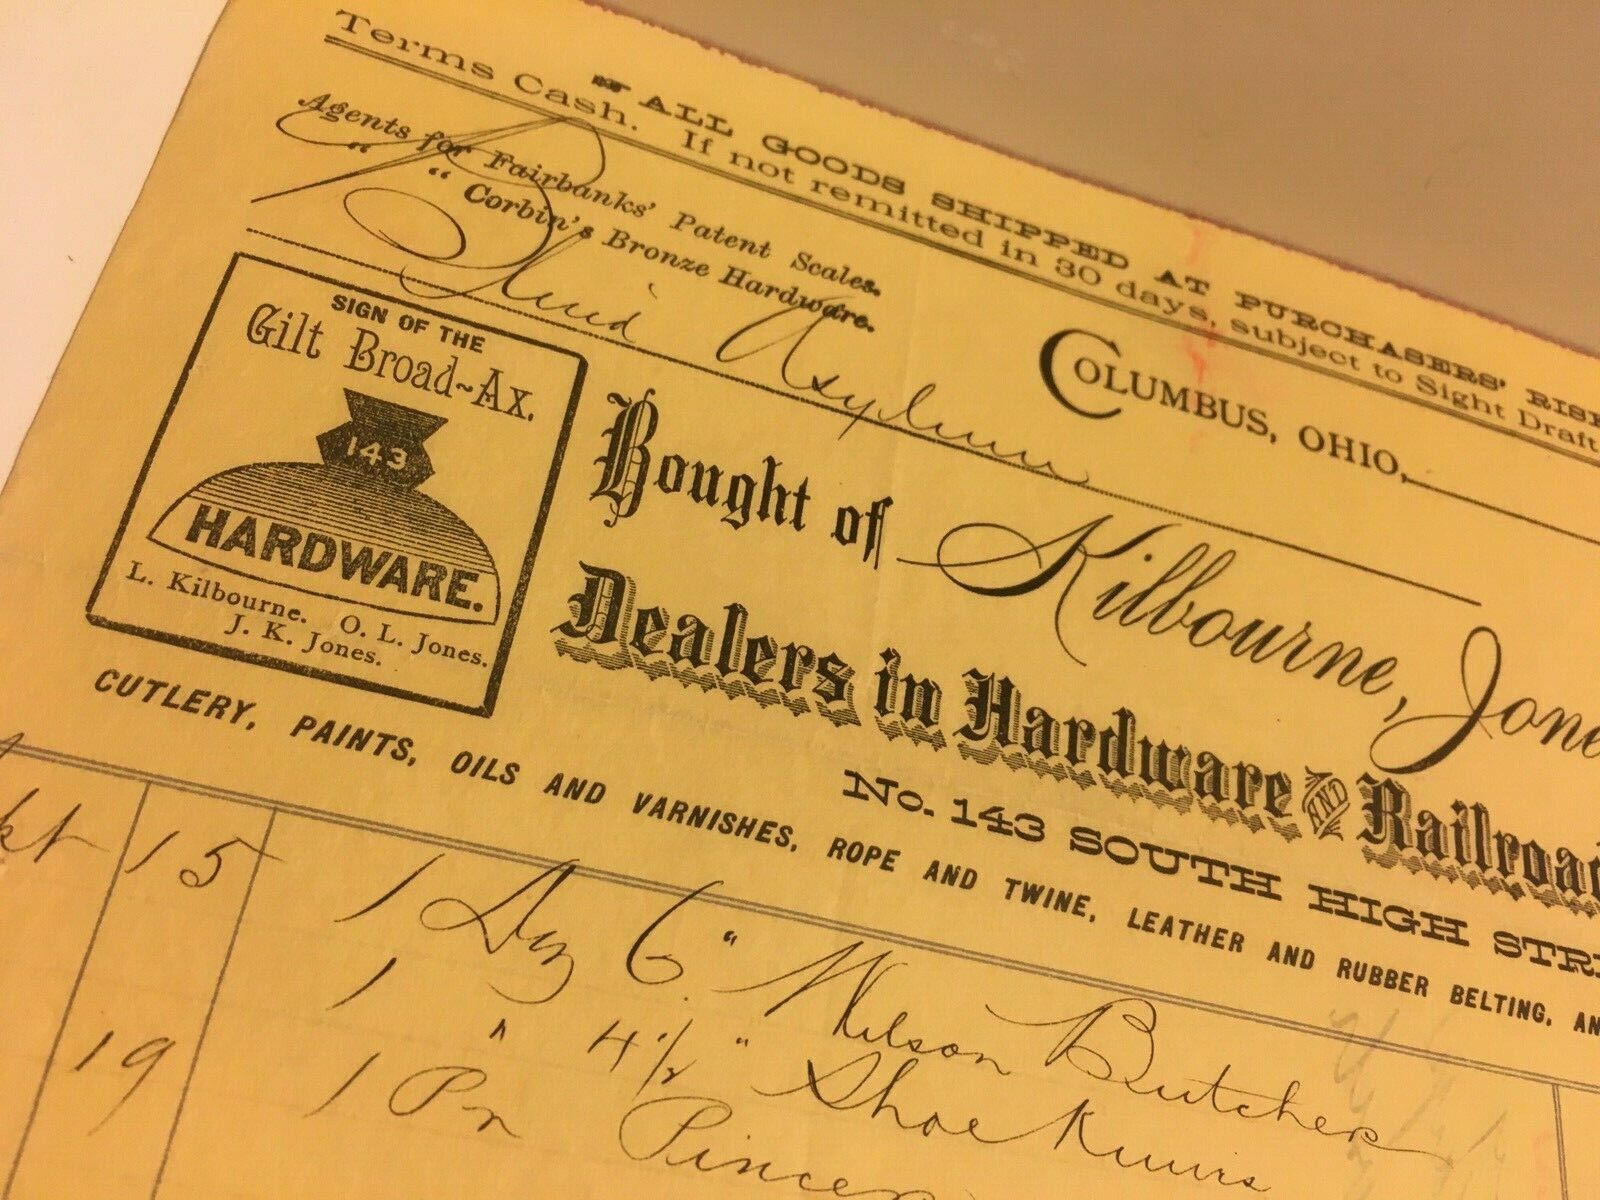 ALL GOODS SHIPPED AT PURCHASERS' RISK
Terms Cash. If not remitted in 30 days, subject to Sight Draft
Agents for Fairbanks' Patent Scales.
“ “ Corbin's Bronze Hardware.
COLUMBUS, OHIO,
Blind Asylum
SIGN OF THE
Gilt Broad-Ax.
143
HARDWARE.
L. Kilbourne. O. L. Jones.
J. K. Jones.
Bought of Kilbourne, Jone
Dealers in Hardware AND Railroad
No. 143 SOUTH HIGH STRE
CUTLERY, PAINTS, OILS AND VARNISHES, ROPE AND TWINE, LEATHER AND RUBBER BELTING, AN
15 1 Dz 6 " Wilson Butcher
1 " 4 1/2 " Shoe Knives
19 1 Pr Pincer